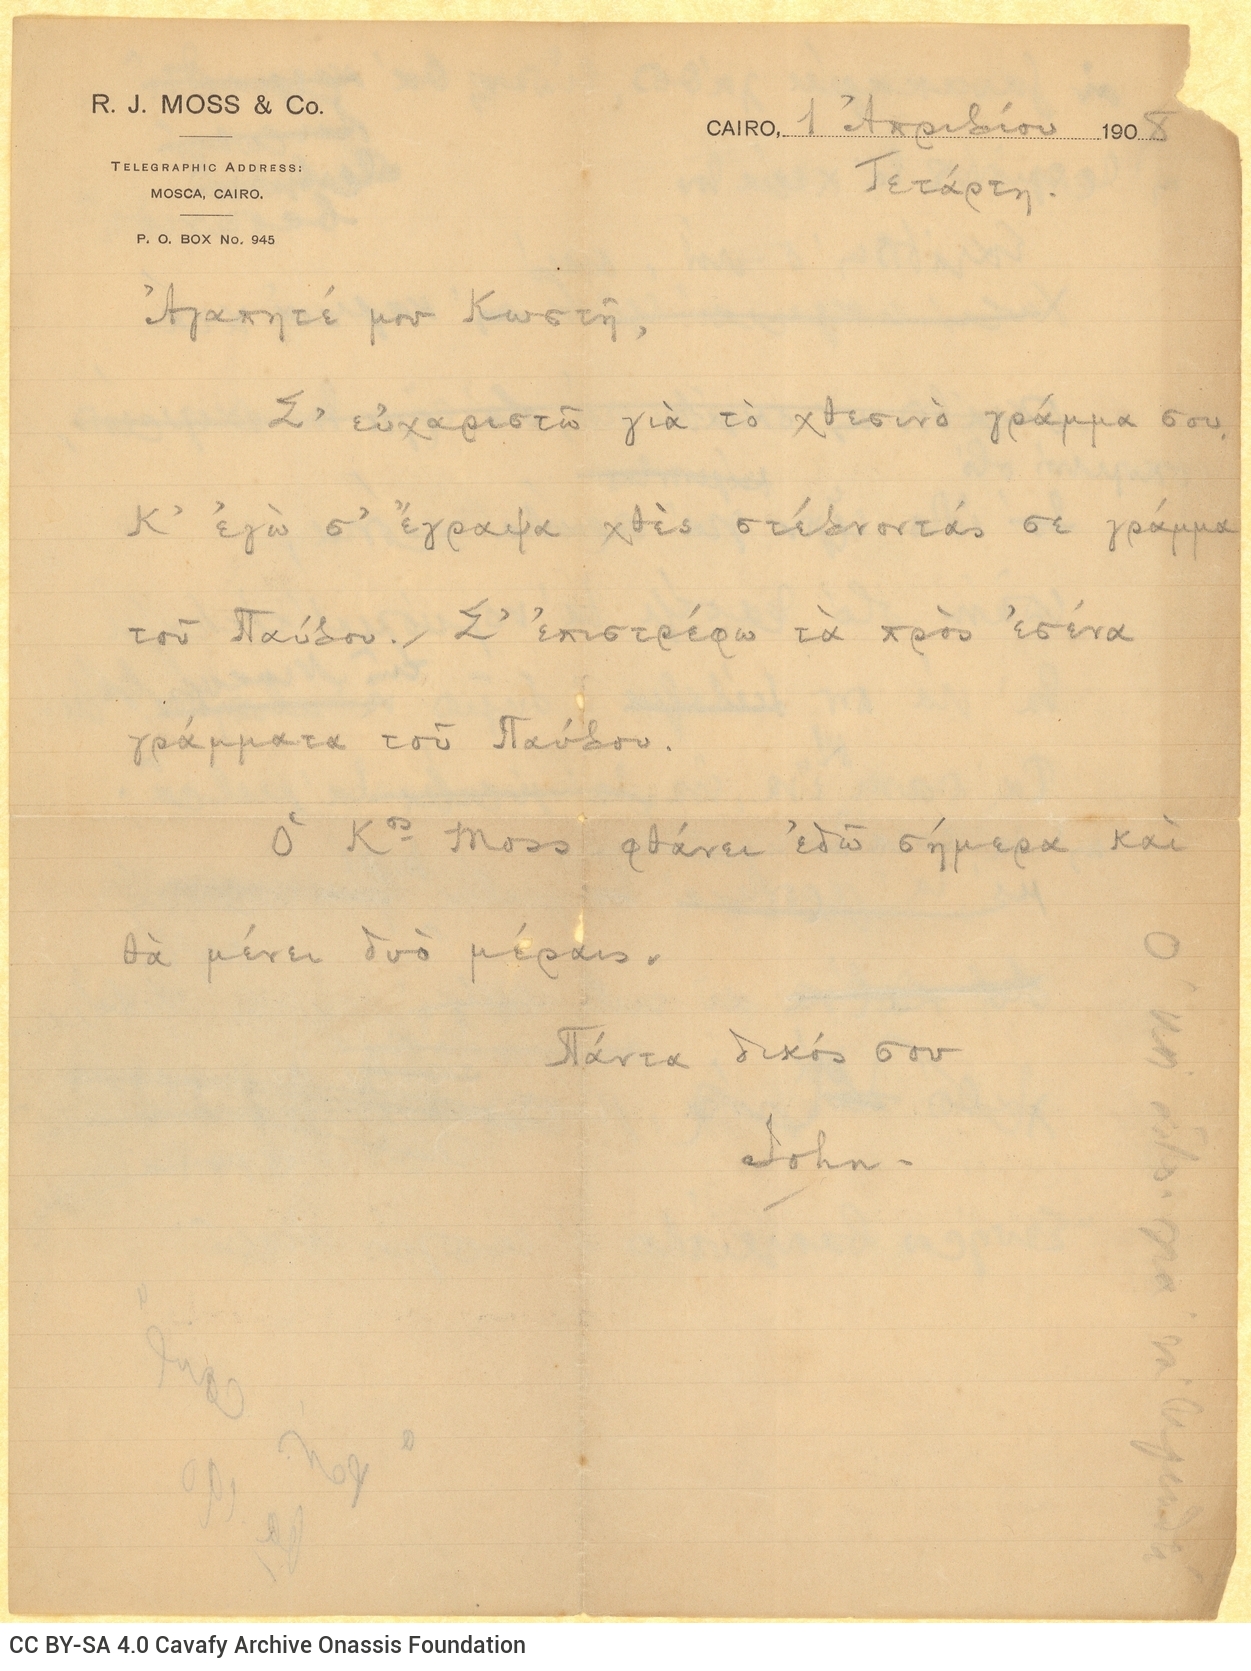 R. J. MOSS & Co.
TELEGRAPHIC ADDRESS:
MOSCA, CAIRO.
P. O. BOX No. 945
CAIRO, 1 Ἀπριλίου 1908
Τετάρτη.
Ἀγαπητέ μου Κωστῆ,
Σ' εὐχαριστῶ γιὰ τὸ χθεσινὸ γράμμα σου.
Κ' ἐγὼ σ' ἔγραψα χθὲς στέλνοντάς σε γράμμα
τοῦ Παύλου./ Σ' ἐπιστρέφω τὰ πρὸς ἐσένα
γράμματα τοῦ Παύλου.
Ὁ Κος Moss φθάνει ἐδῶ σήμερα καὶ
θὰ μένει δυὸ μέραις.
Πάντα δικός σου
John -
CC BY-SA 4.0 Cavafy Archive Onassis Foundation